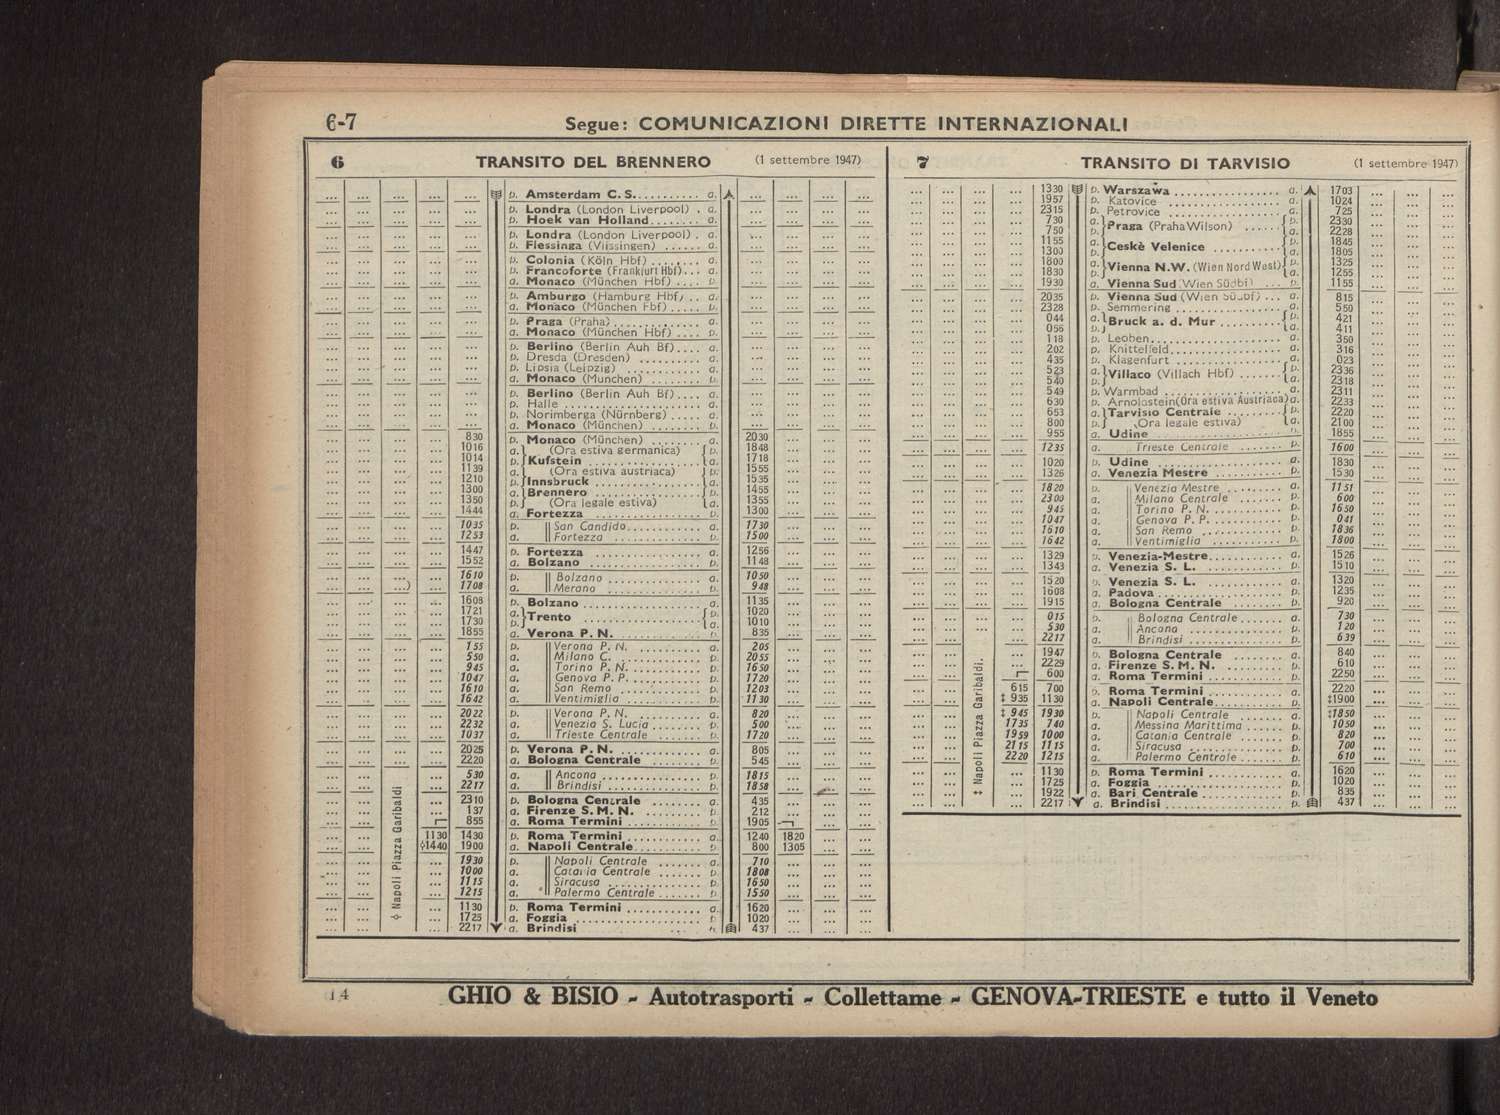 6-7 Segue: COMUNICAZIONI DIRETTE INTERNAZIONALI
6 TRANSITO DEL BRENNERO (1 settembre 1947)
p. Amsterdam C.S. a.
p. Londra (London Liverpool) a.
p. Hoek van Holland a.
p. Londra (London Liverpool) a.
p. Flessinga (Vlissingen) a.
p. Colonia (Köln Hbf) a.
p. Francoforte (Frankfurt Hbf) a.
a. Monaco (München Hbf) a.
p. Amburgo (Hamburg Hbf) a.
a. Monaco (München Fbf) p.
p. Praga (Praha) a.
a. Monaco (München Hbf) p.
p. Berlino (Berlin Auh Bf) a.
p. Dresda (Dresden) a.
p. Lipsia (Leipzig) a.
a. Monaco (Munchen) p.
p. Berlino (Berlin Auh Bf) a.
p. Halle a.
p. Norimberga (Nürnberg) a.
a. Monaco (München) p.
830 p. Monaco (München) a. 2030
1016 a. (Ora estiva germanica) p. 1848
1014 p. Kufstein a. 1718
1139 a. (Ora estiva austriaca) p. 1555
1210 p. Innsbruck a. 1535
1300 a. Brennero p. 1455
1350 p. (Ora legale estiva) a. 1355
1444 a. Fortezza p. 1300
1035 p. San Candido a. 1730
1253 a. Fortezza p. 1500
1447 p. Fortezza a. 1256
1552 a. Bolzano p. 1148
1610 p. Bolzano a. 1050
1708 a. Merano p. 948
1608 p. Bolzano a. 1135
1721 a. Trento p. 1020
1730 p. a. 1010
1855 a. Verona P.N. p. 835
155 p. Verona P.N. a. 205
550 a. Milano C. p. 2055
945 a. Torino P.N. p. 1650
1047 a. Genova P.P. p. 1720
1610 a. San Remo p. 1203
1642 a. Ventimiglia p. 1130
2022 p. Verona P.N. a. 820
2232 a. Venezia S. Lucia p. 500
1037 a. Trieste Centrale p. 1720
2025 p. Verona P.N. a. 805
2220 a. Bologna Centrale p. 545
530 a. Ancona p. 1815
2217 a. Brindisi p. 1858
2310 p. Bologna Centrale a. 435
137 a. Firenze S.M.N. p. 212
855 a. Roma Termini p. 1905
1130 1430 p. Roma Termini a. 1240 1820
◊1440 1900 a. Napoli Centrale p. 800 1305
1930 p. Napoli Centrale a. 710
1000 a. Catania Centrale p. 1808
1115 a. Siracusa p. 1650
1215 a. Palermo Centrale p. 1550
1130 p. Roma Termini a. 1620
1725 a. Foggia p. 1020
2217 a. Brindisi p. 437
◊ Napoli Piazza Garibaldi
7 TRANSITO DI TARVISIO (1 settembre 1947)
1330 p. Warszawa a. 1703
1957 p. Katovice a. 1024
2315 p. Petrovice a. 725
730 a. Praga (Praha Wilson) p. 2330
750 p. a. 2228
1155 a. Ceskè Velenice p. 1845
1300 p. a. 1805
1800 a. Vienna N.W. (Wien Nord West) p. 1325
1830 p. a. 1255
1930 a. Vienna Sud (Wien Südbf) p. 1155
2035 p. Vienna Sud (Wien Südbf) a. 815
2328 p. Semmering a. 550
044 a. Bruck a. d. Mur p. 421
056 p. a. 411
118 p. Leoben a. 350
202 p. Knittelfeld a. 316
435 p. Klagenfurt a. 023
523 a. Villaco (Villach Hbf) p. 2336
540 p. a. 2318
549 p. Warmbad a. 2311
630 p. Arnoldstein (Ora estiva Austriaca) a. 2233
653 a. Tarvisio Centrale p. 2220
800 p. (Ora legale estiva) a. 2100
955 a. Udine p. 1855
1235 a. Trieste Centrale p. 1600
1020 p. Udine a. 1830
1326 a. Venezia Mestre p. 1530
1820 p. Venezia Mestre a. 1151
2300 a. Milano Centrale p. 600
945 a. Torino P.N. p. 1650
1047 a. Genova P.P. p. 041
1610 a. San Remo p. 1836
1642 a. Ventimiglia p. 1800
1329 p. Venezia-Mestre a. 1526
1343 a. Venezia S.L. p. 1510
1520 p. Venezia S.L. a. 1320
1608 a. Padova p. 1235
1915 a. Bologna Centrale p. 920
015 p. Bologna Centrale a. 730
530 a. Ancona p. 120
2217 a. Brindisi p. 639
1947 p. Bologna Centrale a. 840
2229 a. Firenze S.M.N. p. 610
600 a. Roma Termini p. 2250
615 700 p. Roma Termini a. 2220
‡ 935 1130 a. Napoli Centrale p. ‡1900
‡ 945 1930 p. Napoli Centrale a. ‡1850
1735 740 a. Messina Marittima p. 1050
1959 1000 a. Catania Centrale p. 820
2115 1115 a. Siracusa p. 700
2220 1215 a. Palermo Centrale p. 610
1130 p. Roma Termini a. 1620
1725 a. Foggia p. 1020
1922 a. Bari Centrale p. 835
2217 a. Brindisi p. 437
‡ Napoli Piazza Garibaldi.
14 GHIO & BISIO - Autotrasporti - Collettame - GENOVA-TRIESTE e tutto il Veneto